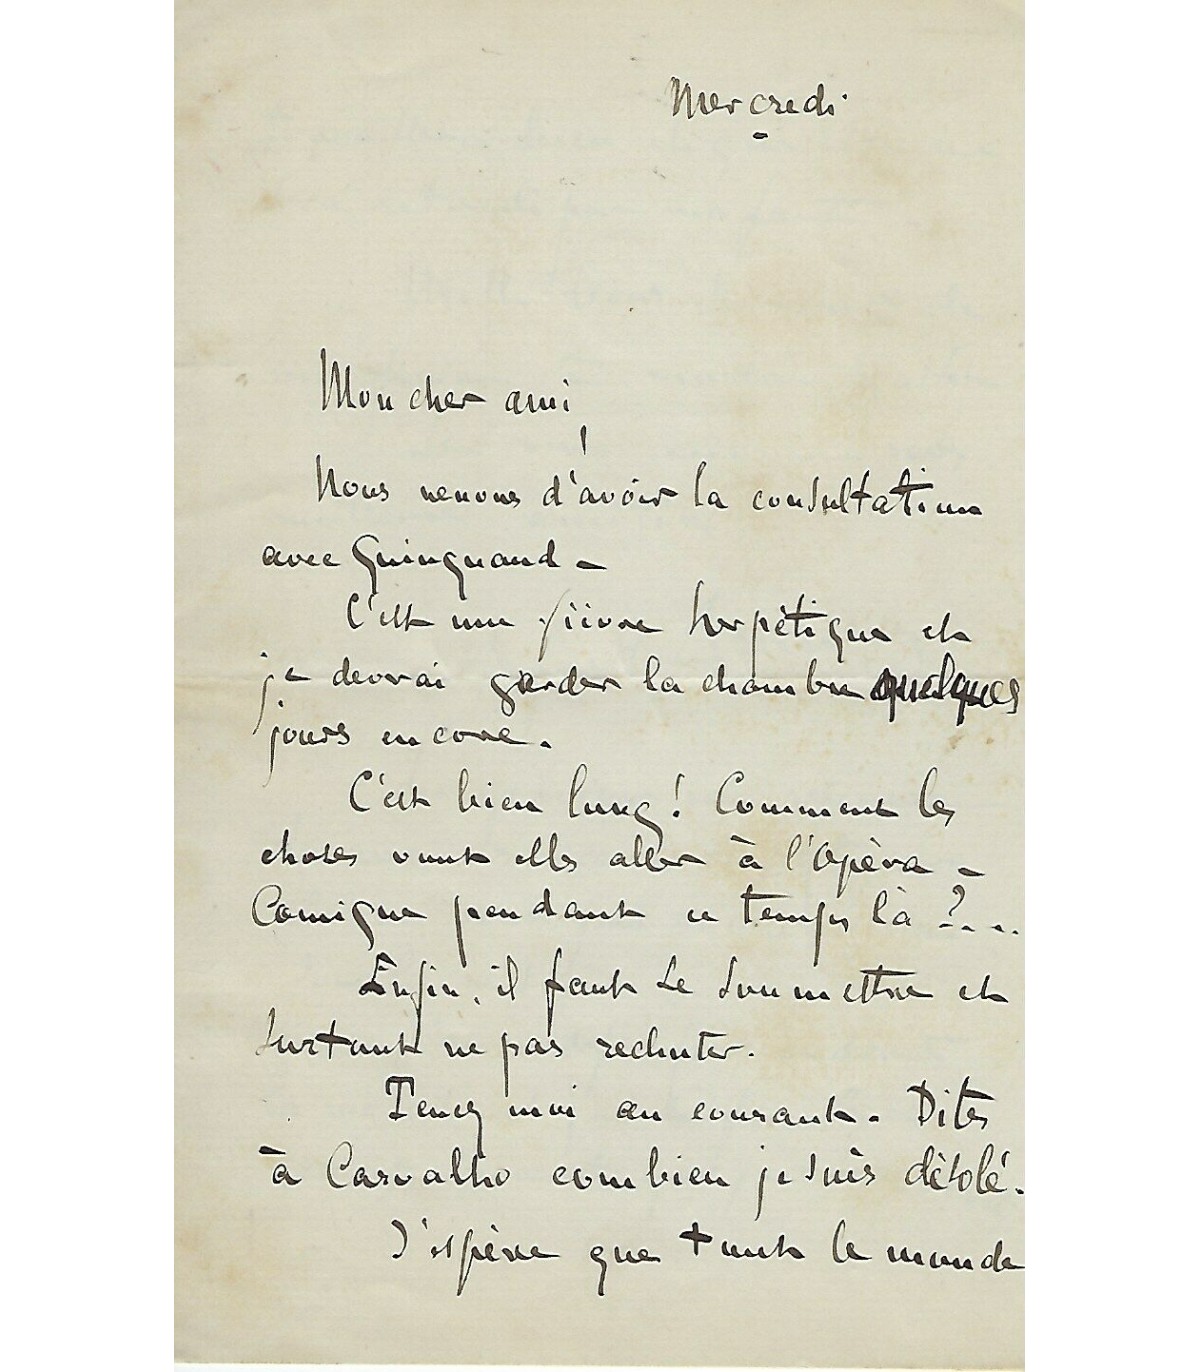 Mercredi
Mon cher ami,
Nous venons d'avoir la consultation
avec Guinquand –
C'est une fièvre herpétique et
je devrai garder la chambre quelques
jours encore.
C'est bien long ! Comment les
choses vont elles aller à l'Opéra –
Comique pendant ce temps là ?...
Enfin, il faut se soumettre et
surtout ne pas rechuter.
Tenez moi au courant. Dites
à Carvalho combien je suis désolé.
J'espère que tout le monde